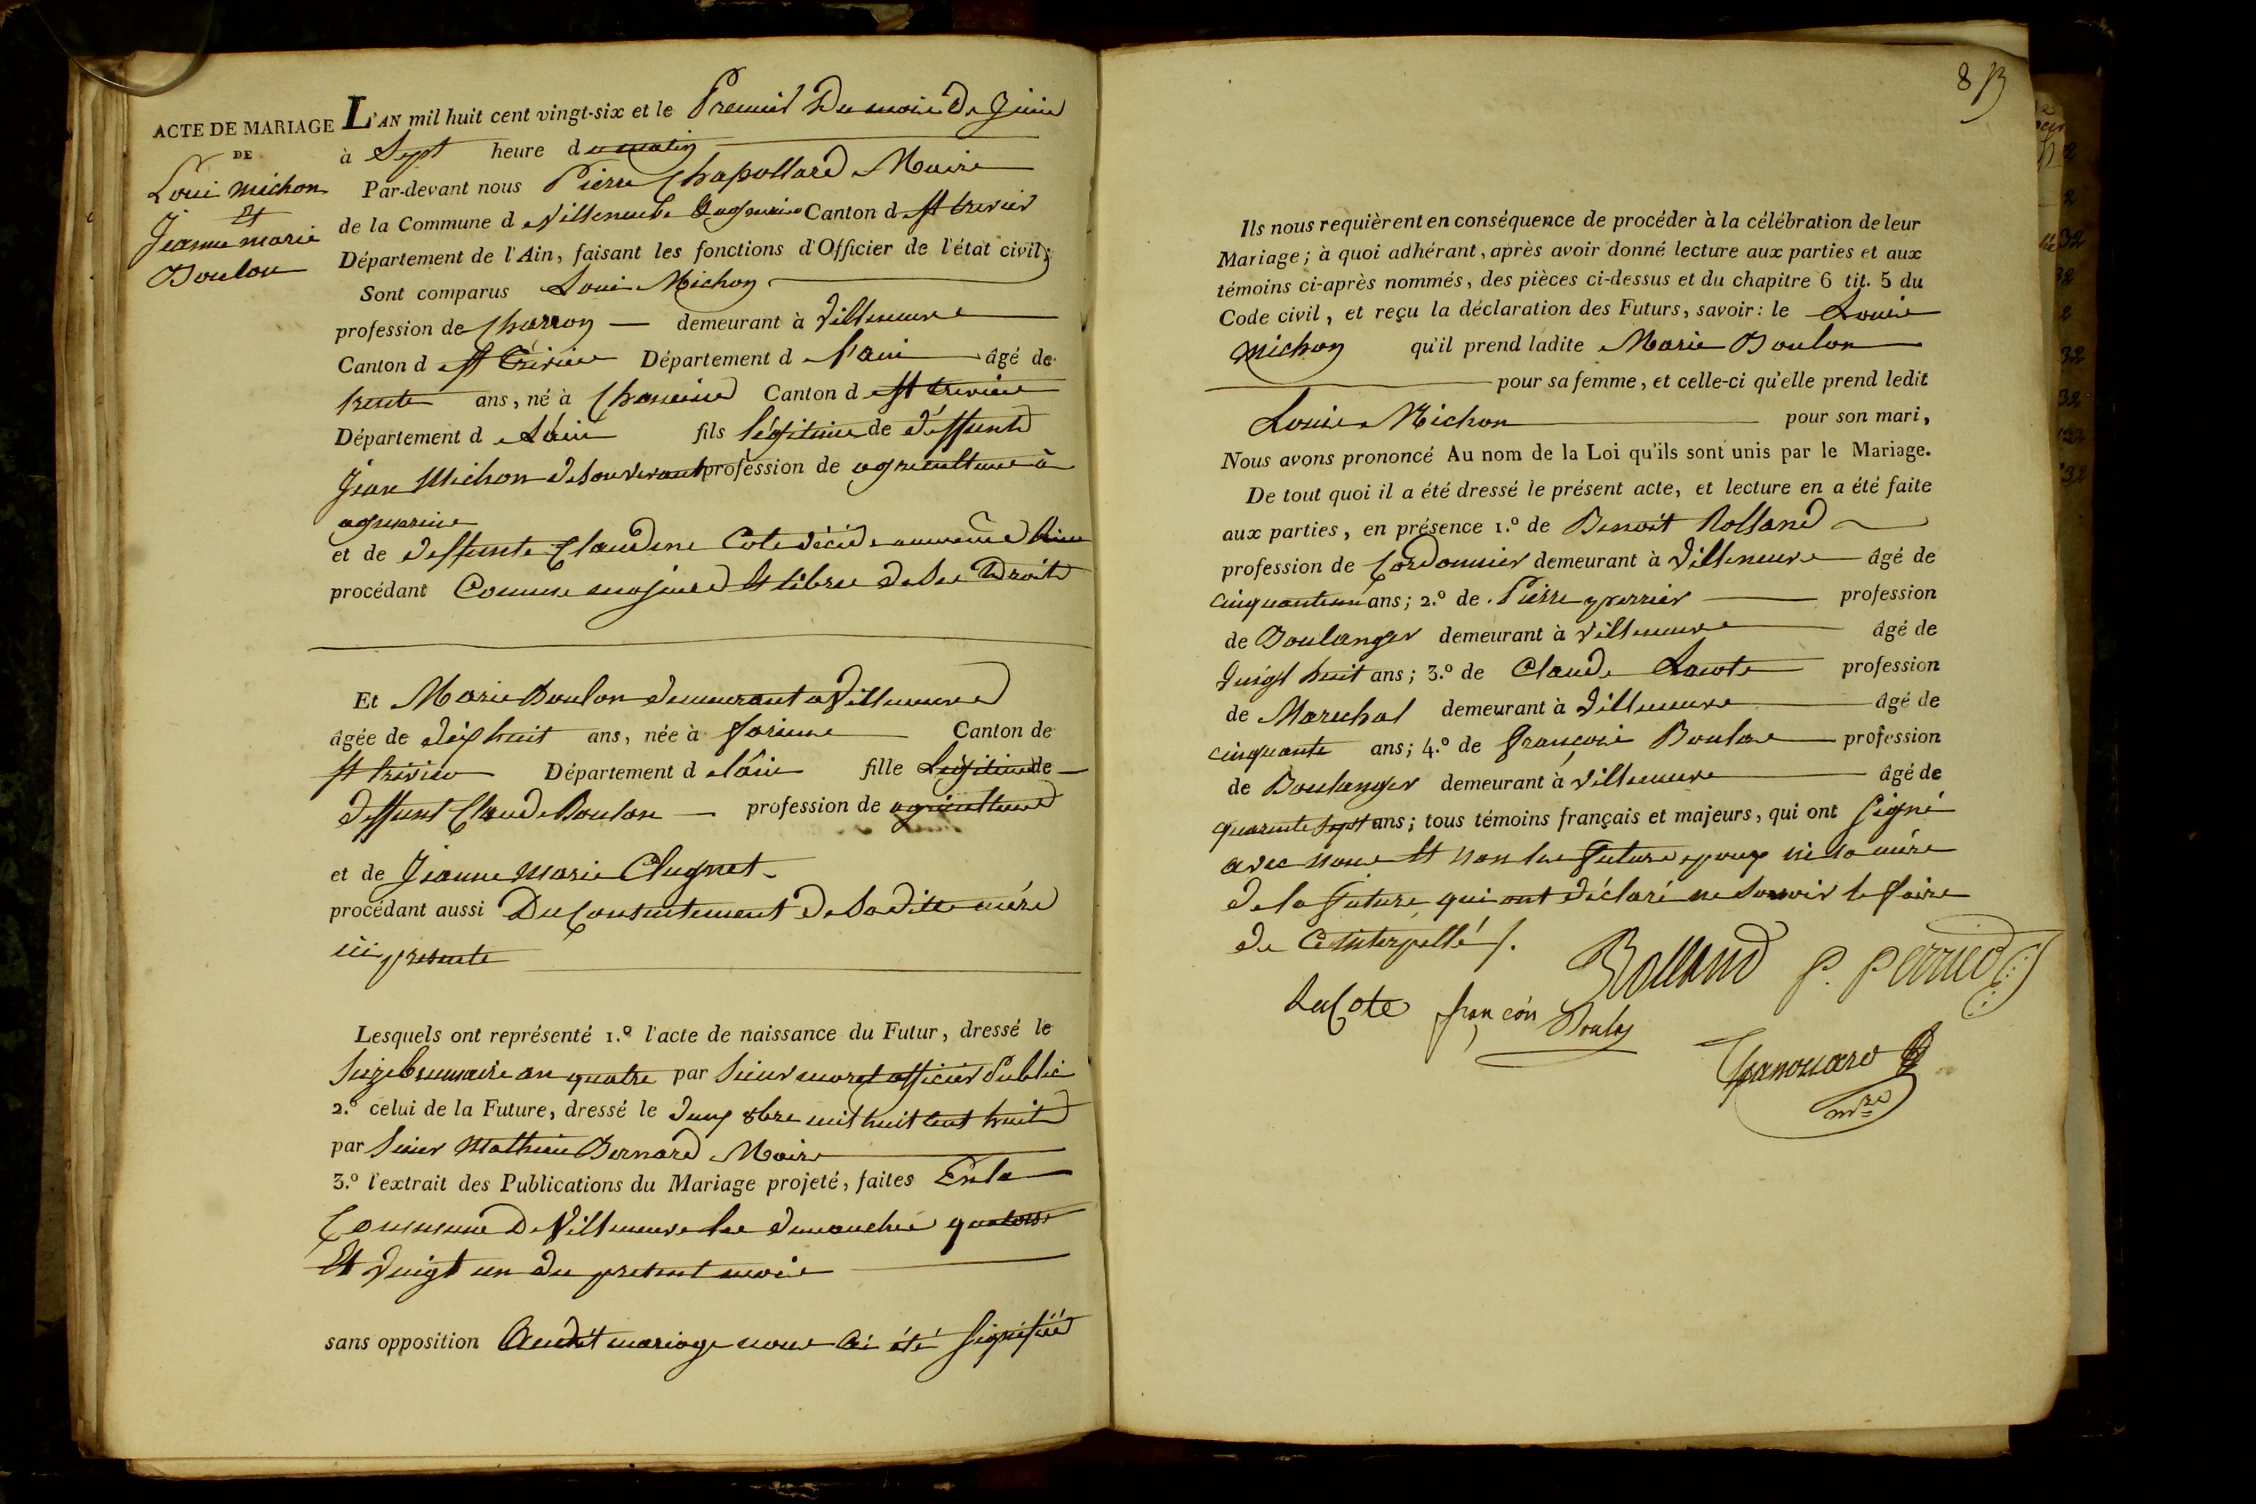 ACTE DE MARIAGE
DE
Loui Michon
Et
Jeanne Marie
Boulon
L'AN mil huit cent vingt-six et le Premier Du mois De Juin
à Sept heure du matin
Par-devant nous Pierre Chapollard Maire
de la Commune d Villeneuve Canton d St trivier
Département de l'Ain, faisant les fonctions d'Officier de l'état civil;
Sont comparus Loui Michon
profession de Charron demeurant à Villeneuve
Canton d St Trivier Département d l'ain âgé de
trente ans, né à Chaneins Canton d St trivier
Département d L'ain fils légitime de deffunt
Jean Michon de son vivant profession de agriculteur à
et de deffunte Claudine Cote décédé au même lieu
procédant Comme majeur Et libre De Ses Droits
Et Marie Boulon demeurant a Villeneuve
âgée de dix huit ans, née à Canton de
St trivier Département d l'ain fille Legitime de
deffunt Claude Boulon profession de agriculteur
et de Jeanne Marie Clugnet
procédant aussi Du Consentement De Sa ditte mére
ici presente
Lesquels ont représenté 1.º l'acte de naissance du Futur, dressé le
Seize brumaire an quatre par Sieur moret officier Public
2.º celui de la Future, dressé le deux 8bre mil huit cent huit
par Sieur Mathieu Bernard Maire
3.º l'extrait des Publications du Mariage projeté, faites En la
Commune De Villeneuve les dimanches quatorze
Et Vingt un du present mois
sans opposition Audit mariage nous ai été Signifiée
8 B
Ils nous requièrent en conséquence de procéder à la célébration de leur
Mariage; à quoi adhérant, après avoir donné lecture aux parties et aux
témoins ci-après nommés, des pièces ci-dessus et du chapitre 6 tit. 5 du
Code civil, et reçu la déclaration des Futurs, savoir: le Louis
Michon qu'il prend ladite Marie Boulon
pour sa femme, et celle-ci qu'elle prend ledit
Louis Michon pour son mari,
Nous avons prononcé Au nom de la Loi qu'ils sont unis par le Mariage.
De tout quoi il a été dressé le présent acte, et lecture en a été faite
aux parties, en présence 1.º de Benoît Rolland
profession de Cordonnier demeurant à Villeneuve âgé de
cinquante un ans; 2.º de Pierre perrier profession
de Boulanger demeurant à Villeneuve âgé de
Vingt huit ans; 3.º de Claude Lacote profession
de Marechal demeurant à Villeneuve âgé de
cinquante ans; 4.º de françois Boulon profession
de Boulanger demeurant à Villeneuve âgé de
quarente sept ans; tous témoins français et majeurs, qui ont Signé
avec nous Et non les Futurs epoux ni la mére
de la Future, qui ont déclaré ne Savoir le faire
de Ce interpellé /.
Rolland P. Perrier
LaCote françois Boulon
mre